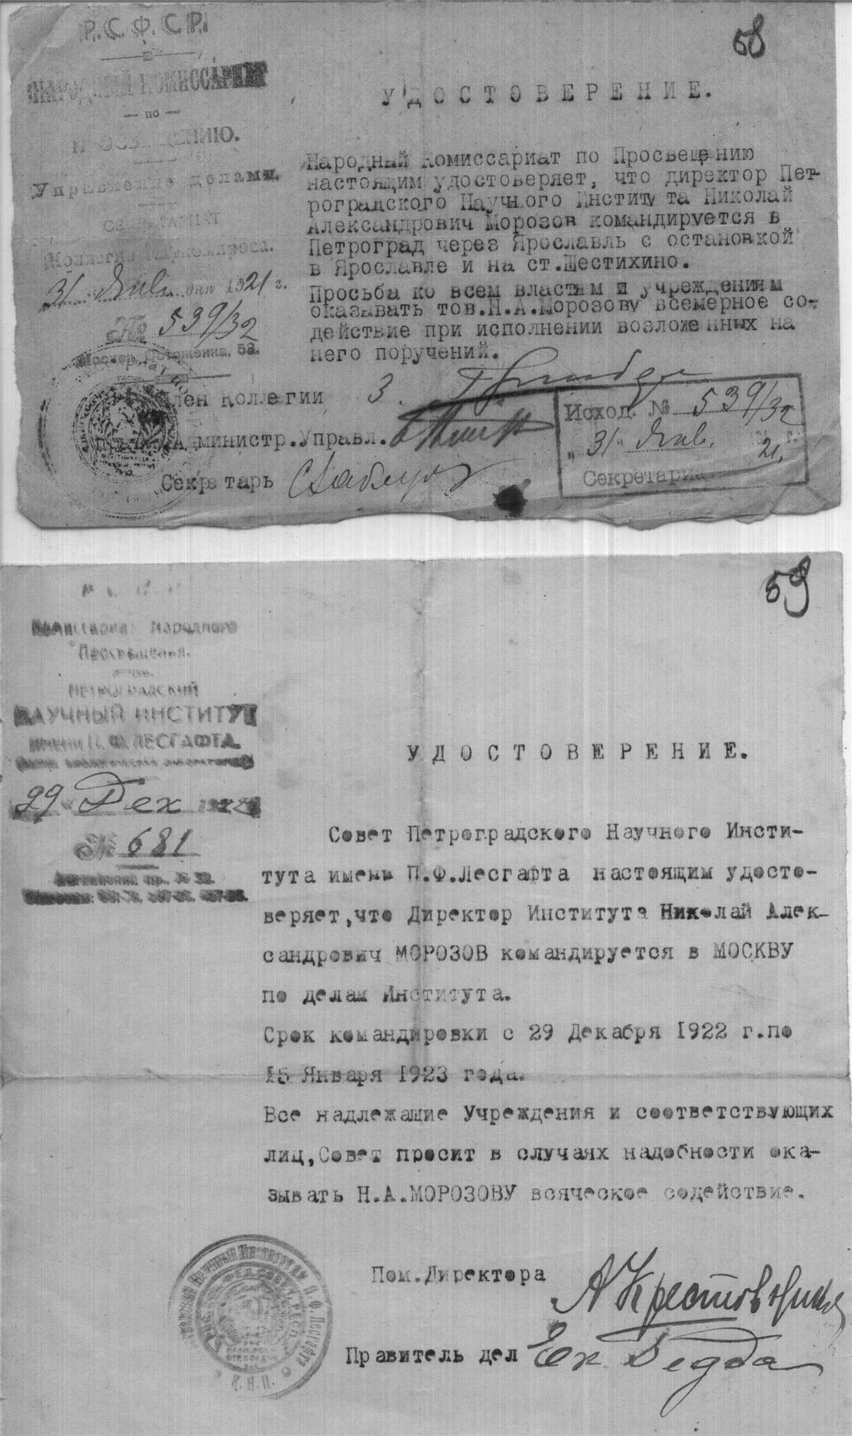 58
Р.С.Ф.С.Р.
НАРОДНЫЙ КОМИССАРИАТ
— по —
ПРОСВЕЩЕНИЮ.
Управление делами.
СЕКРЕТАРИАТ
Коллегии Наркомпроса.
31 1921 г.
№ 539/32
УДОСТОВЕРЕНИЕ.
Народный Комиссариат по Просвещению
настоящим удостоверяет, что директор Пет-
роградского Научного Института Николай
Александрович Морозов командируется в
Петроград через Ярославль с остановкой
в Ярославле и на ст.Шестихино.
Просьба ко всем властям и учреждениям
оказывать тов.Н.А.Морозову всемерное со-
действие при исполнении возложенных на
него поручений.
Член Коллегии
Администр.Управл.
Секретарь
Исход. № 539/32
„31" Янв. 21.
Секретариат
59
Комиссариат Народного
Просвещения.
ПЕТРОГРАДСКИЙ
НАУЧНЫЙ ИНСТИТУТ
ИМЕНИ П. Ф. ЛЕСГАФТА.
29 Дек 1922
№ 681
УДОСТОВЕРЕНИЕ.
Совет Петроградского Научного Инсти-
тута имени П.Ф.Лесгафта настоящим удосто-
веряет,что Директор Института Николай Алек-
сандрович МОРОЗОВ командируется в МОСКВУ
по делам Института.
Срок командировки с 29 Декабря 1922 г.по
15 Января 1923 года.
Все надлежащие Учреждения и соответствующих
лиц,Совет просит в случаях надобности ока-
зывать Н.А.МОРОЗОВУ всяческое содействие.
Пом.Директора
Правитель дел